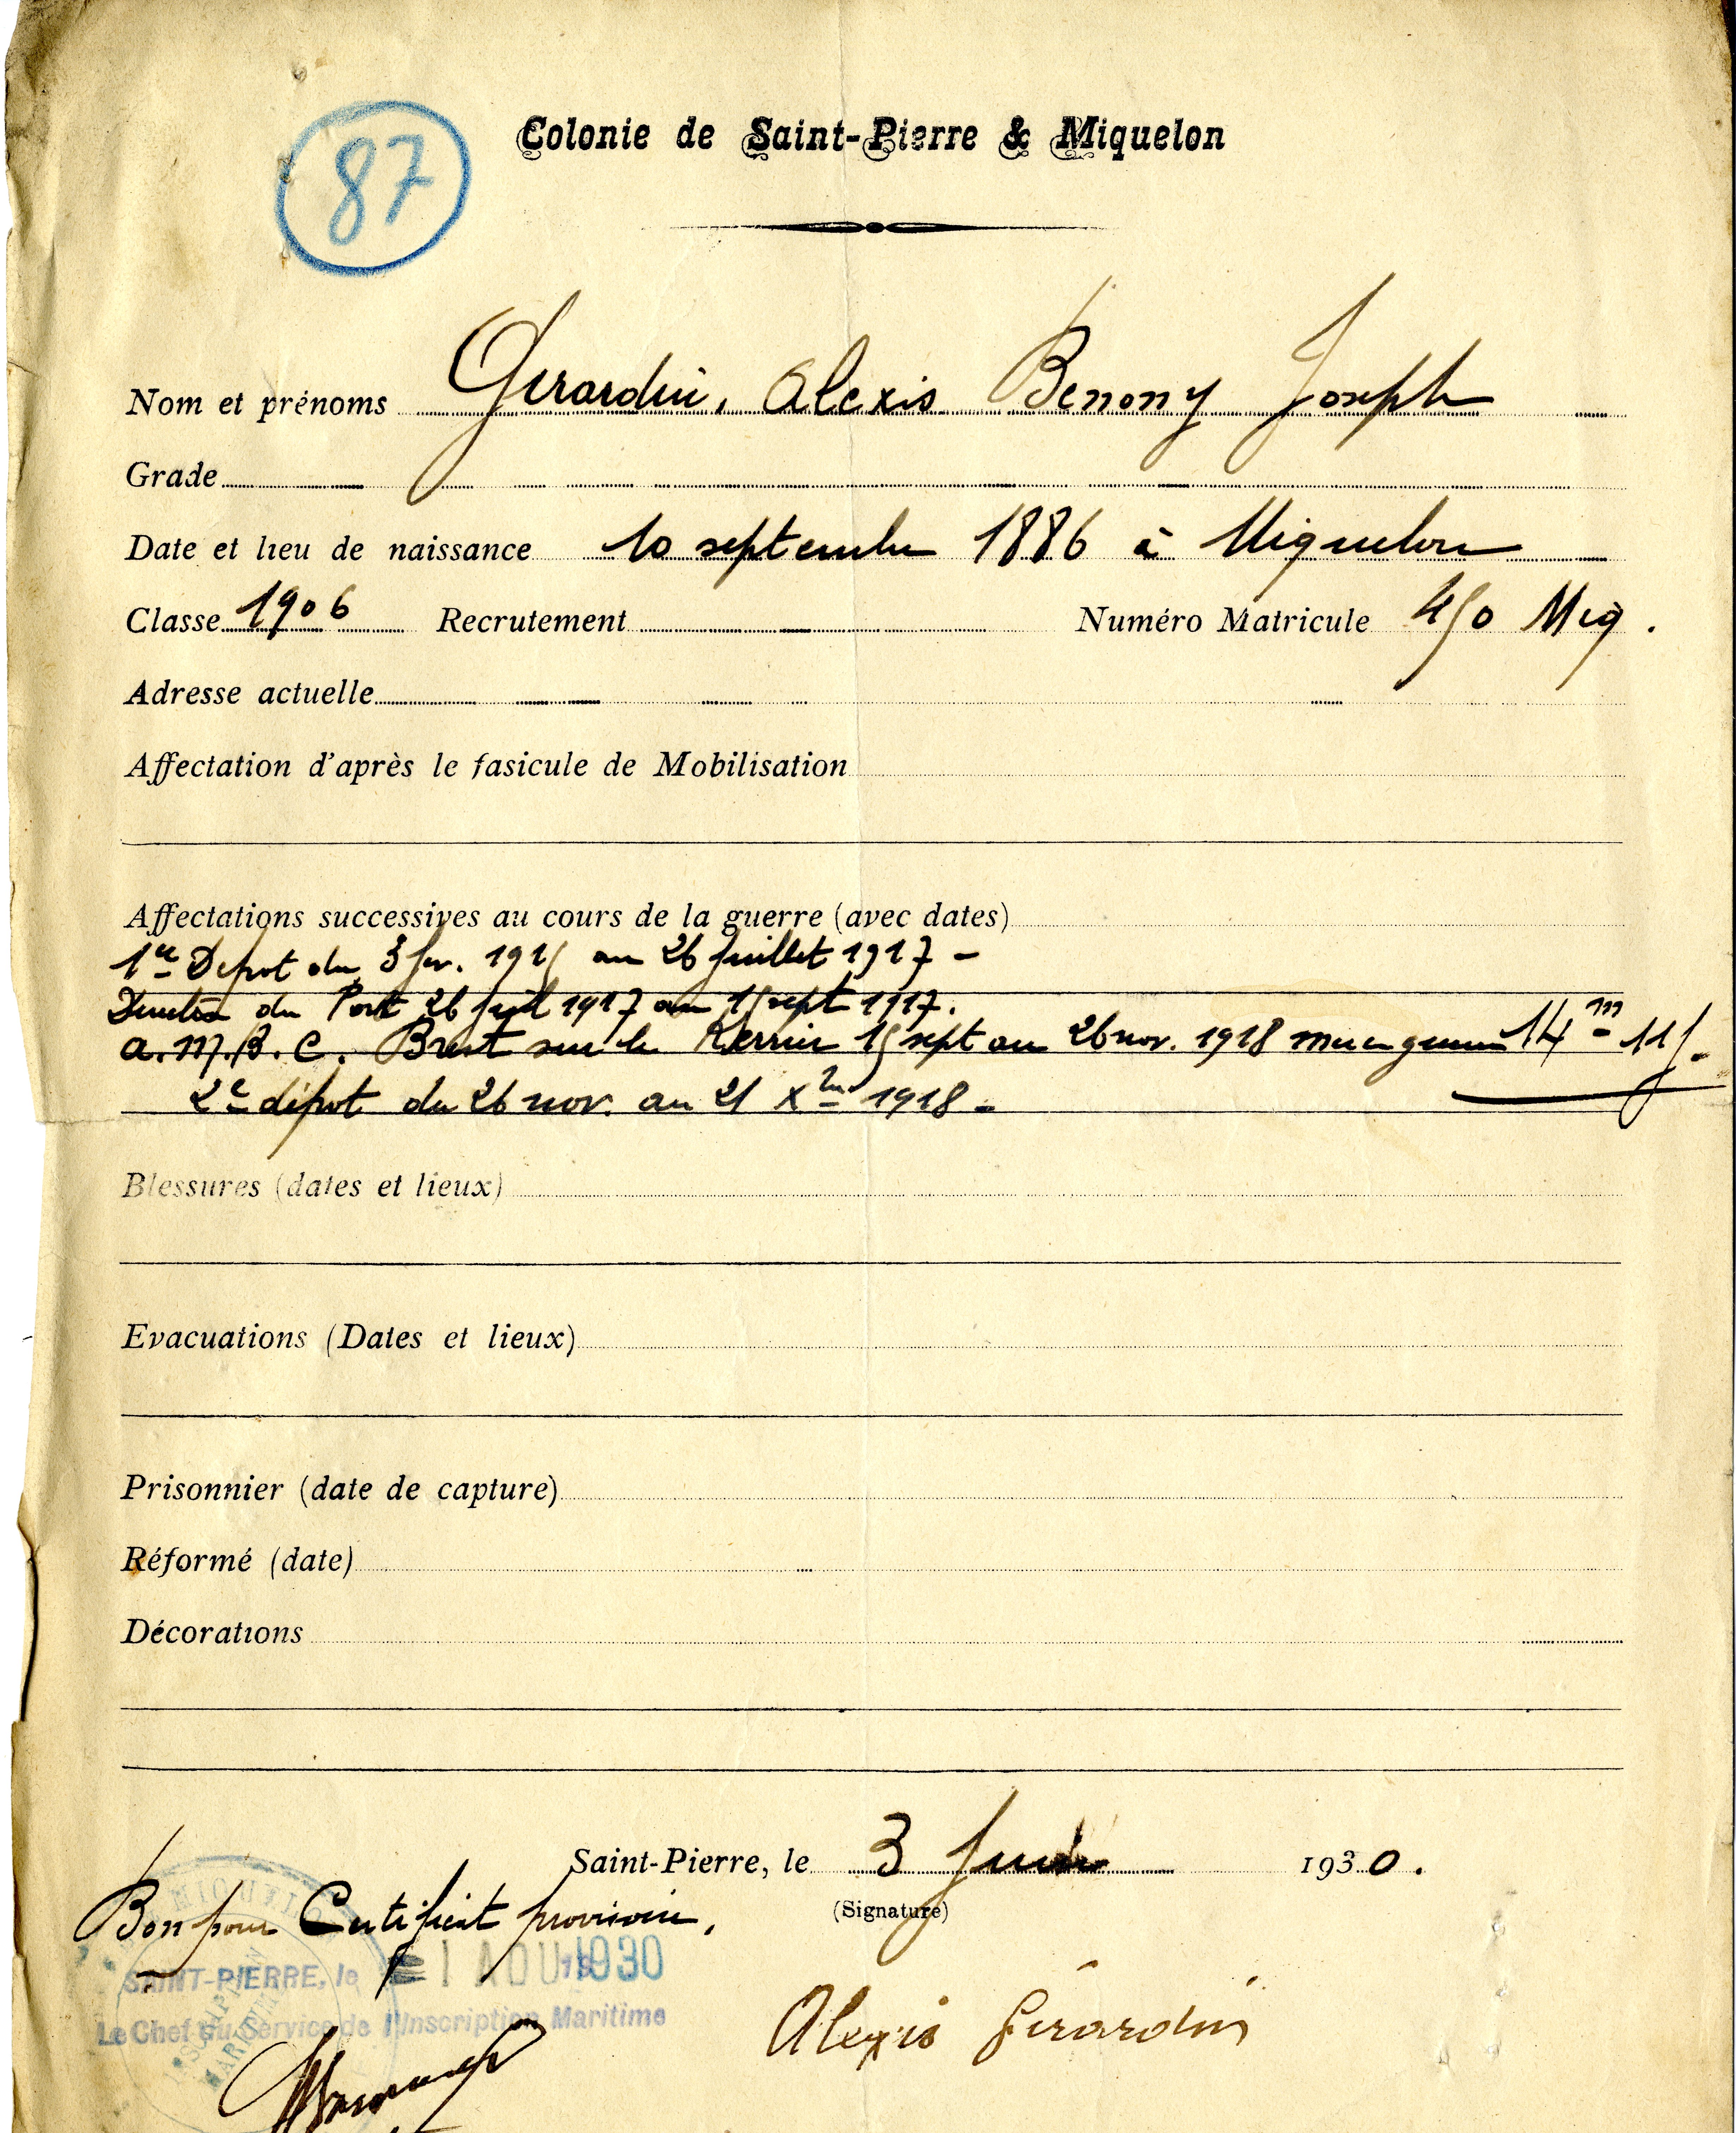 87
Colonie de Saint-Pierre & Miquelon
Nom et prénoms Girardin, Alexis Benony Joseph
Grade
Date et lieu de naissance 10 septembre 1886 à Miquelon
Classe 1906 Recrutement Numéro Matricule 450 Miq.
Adresse actuelle
Affectation d'après le fasicule de Mobilisation
Affectations successives au cours de la guerre (avec dates)
1er Depot du 3 fev. 1915 au 26 juillet 1917 -
du Port 26 juil 1917 au 15 sept 1917.
a.M.B.C. Brest sur le 15 sept au 26 nov. 1918 mer en guerre 14 m 11 j.
2e dépot du 26 nov. au 21 Xbre 1918 -
Blessures (dates et lieux)
Evacuations (Dates et lieux)
Prisonnier (date de capture)
Réformé (date)
Décorations
Saint-Pierre, le 3 Juin 1930.
(Signature)
Bon pour Certificat provisoire,
SAINT-PIERRE, le 1 AOU 1930
Le Chef du Service de l'Inscription Maritime
Alexis Girardin